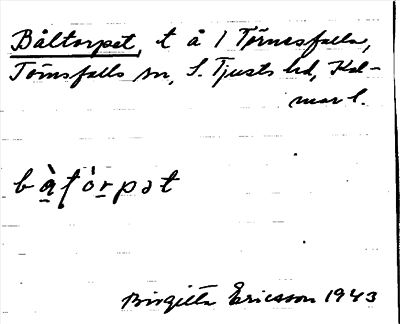 Båltorpet, t å 1 Törnesfalla,
Törnsfalls sn, S. Tjusts hd, Kal-
mar l.
bàtórpət
Birgitta Ericsson 1943